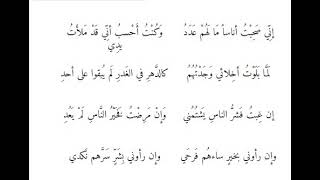 إنّي صَحِبْتُ أناساً مَا لَهُمْ عَدَدُ وَكُنْتُ أَحْسبُ أنّي قَدْ مَلأتُ يدِي
لَمَّا بَلَوْتُ أخِلائي وَجَدْتُهُمُ كالدَّهرِ في الغَدرِ لَم يُبقوا على أحدِ
إن غِبتُ فَشَرُّ النَّاس يَشتُمُني وَإنْ مَرِضْتُ فَخَيْرُ النَّاسِ لَمْ يَعُدِ
وإن رأوني بخيرٍ ساءهُم فَرَحي وإن رأوني بِشَرٍّ سَرَّهم نَكَدي